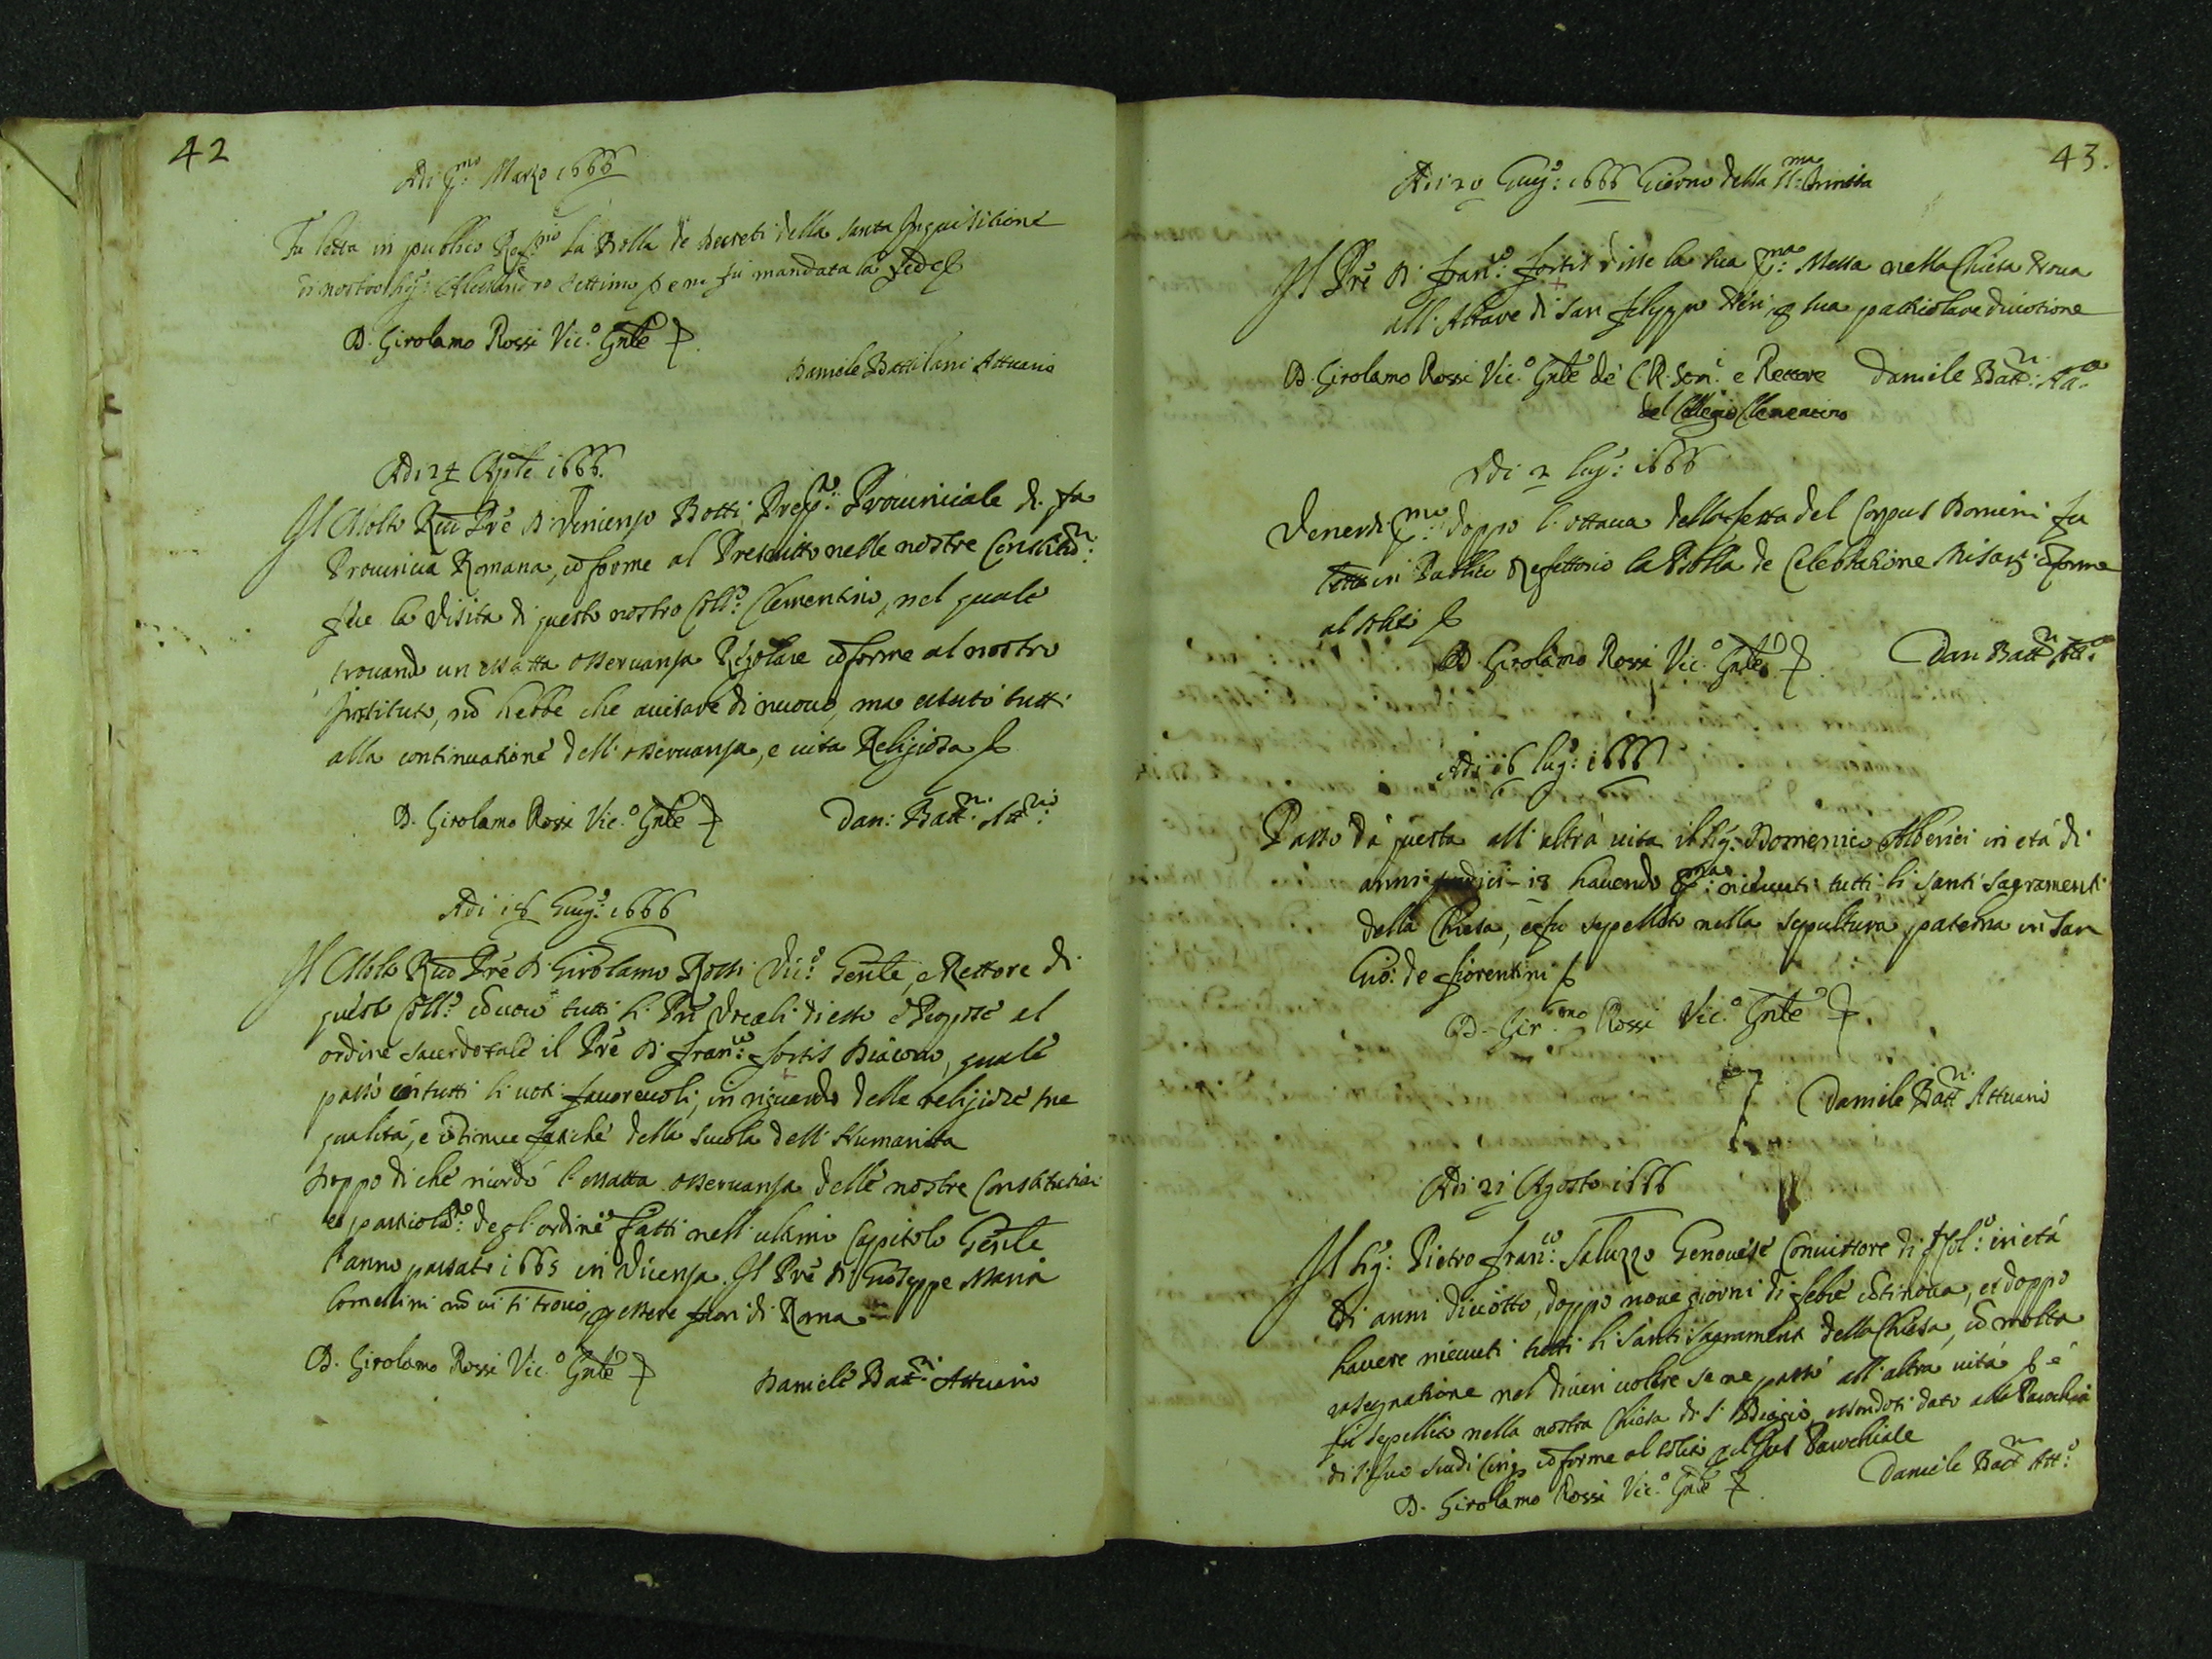 42
Adi p.mo Marzo 1666
Fu letta in publico Reff.rio la Bolla de Decreti della Santa Inquisitione
di nostro Sig.re Alessandro settimo e ne fu mandata la fede
D. Girolamo Rossi Vic.o Gnle
Daniele Battilani Attuario
Adi 24 Aprle 1666.
Il Molto Rdo Pre D. Vincenzo Botti Prep.to Provinciale di
Provincia Romana, coforme al Prescritto nelle nostre Constitut.ni
fece la visita di questo nostro Coll.o Clementino, nel quale
trovando un essatta osservanza Regolare coforme al nostro
Instituto, nō hebbe che avisare di nuovo, ma essortò tutti
alla continuatione dell'osservanza, e vita Religiosa
D. Girolamo Rossi Vic.o Gnle
Dan: Batt.ni Att.rio
Adi 18 Giug.o 1666
Il Molto Rdo Pre D. Girolamo Rossi Vic.o Genle, e Rettore di
questo Coll.o cōvocò tutti li Pri Vocali di esso e Propose al
ordine sacerdotale il Pre D. Fran.co Fortis Diacono, quale
passò cō tutti li voti favorevoli, in riguardo delle religiose sue
qualità, e cōtinue fatiche della scuola dell'Humanita
Doppo di che ricordò l'essatta osservanza delle nostre Constitutioni
et particolar.te degl'ordini fatti nell'ultimo Capitolo Genle
l'anno passato 1665 in Vicenza. Il Pre D. Gioseppe Maria
Comellini nō vi si trovò p essere fuori di Roma
D. Girolamo Rossi Vic.o Gnle
Daniele Batt.ni Attuario
43.
Adi 20 Giug.o 1666 Giorno della SS.ma Trinità
Il Pre D. Fran.co Fortis disse la sua p.ma Messa nella Chiesa nova
all'Altare di San Filippo Neri p sua particolare divotione
D. Girolamo Rossi Vic.o Gnle de C. R. Som.i e Rettore
del Collegio Clementino
Daniele Batt.ni Att.o
Adi 2 Lug.o 1666
Venerdi p.mo doppo l'ottava della festa del Corpus Domini fu
letta in Publico Refettorio la Bolla de Celebratione Missar. coforme
al solito
D. Girolamo Rossi Vic.o Gnle
Dan Batt.ni Att.o
Adi 16 Lug.o 1666
Passò da questa all'altra vita il Sig.r Domenico Alberici in età di
anni 18 havendo p.ma ricevuti tutti li santi Sagramenti
della Chiesa, e fu sepellito nella sepultura paterna in San
Gio: de Fiorentini
D. Gir.mo Rossi Vic.o Gnle
Daniele Batt.ni Attuario
Adi 21 Agosto 1666
Il Sig.r Pietro Fran.co Saluzzo Genovese Convittore di Coll.o in età
di anni diciotto, doppo nove giorni di febre cōtinova, et doppo
havere ricevuti tutti li Santi Sagramenti della Chiesa, cō molta
rasegnatione nel divin volere se ne passò all'altra vita e
fu sepellito nella nostra Chiesa di S. Biagio, essendosi dato alla Parochia
scudi cinq coforme al solito Parochiale
D. Girolamo Rossi Vic.o Gnle
Daniele Batt.ni Att.o